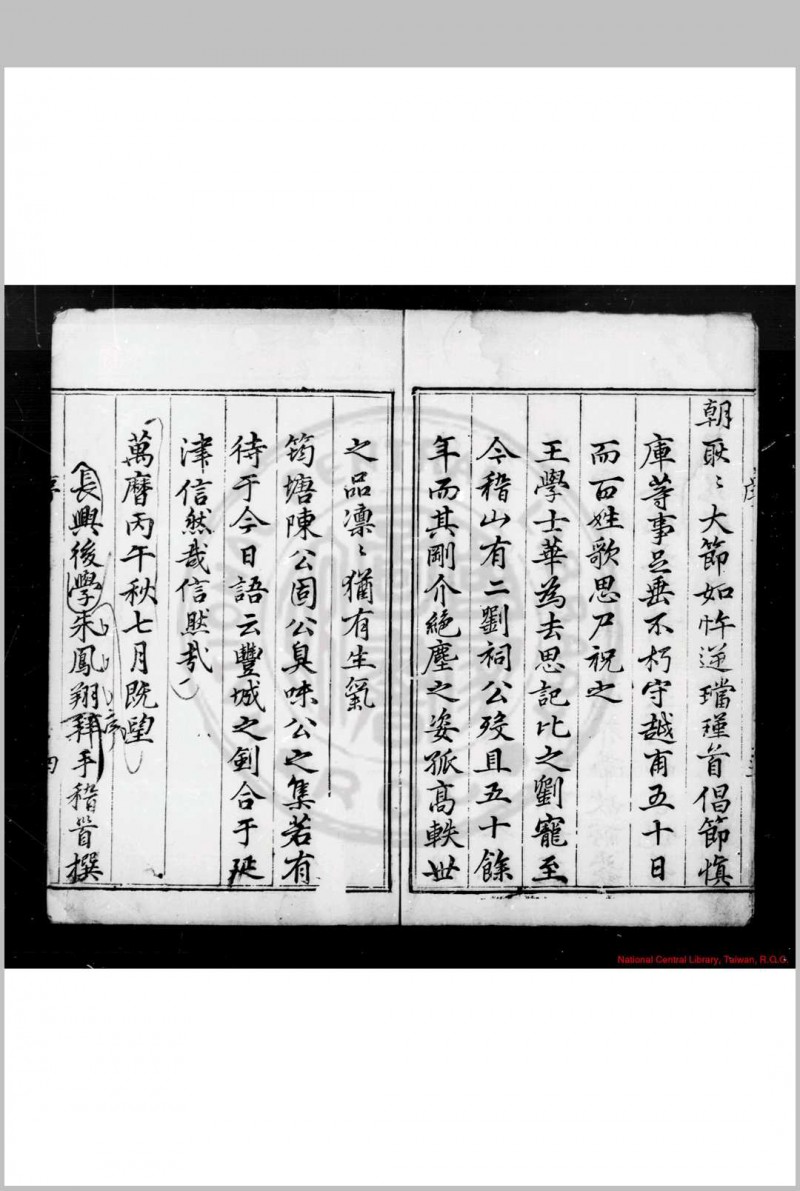 朝耿〻大節如忤逆璫瑾首倡節慎
庫䓁事足垂不朽守越甫五十日
而百姓歌思尸祝之
王學士華為去思記比之劉寵至
今稽山有二劉祠公歿且五十餘
年而其剛介絶塵之姿孤髙軼世
之品凛〻猶有生氣
筠塘陳公固公臭味公之集若有
待于今日語云豐城之劍合于延
津信然哉信然哉
萬曆丙午秋七月既望
長興後學朱鳳翔拜手稽首撰
序
National Central Library, Taiwan, R.O.C.